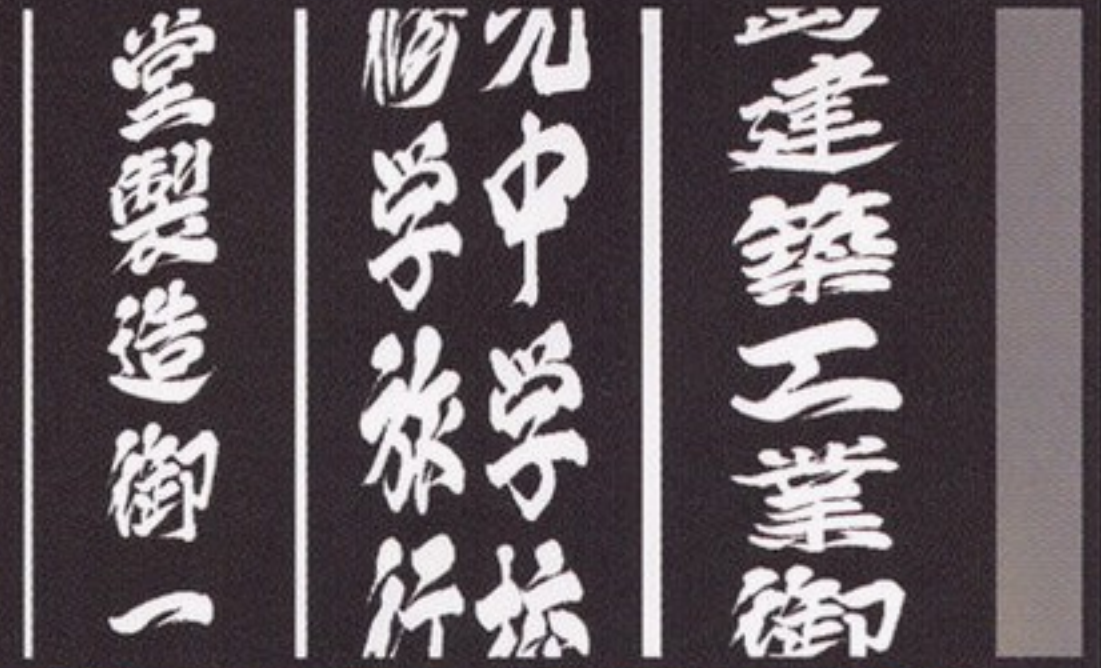 建築工業御
中学校
修学旅行
堂製造御一